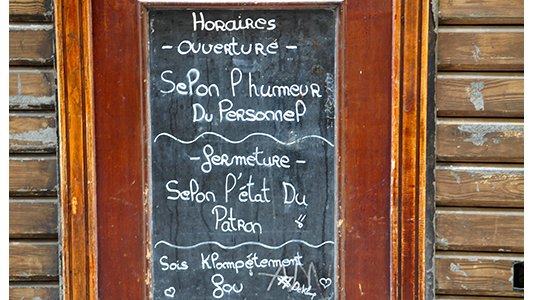 Horaires
- ouverture -
Selon l'humeur
Du Personnel
- fermeture -
Selon l'état Du
Patron
!!
Sois Klompétement
fou